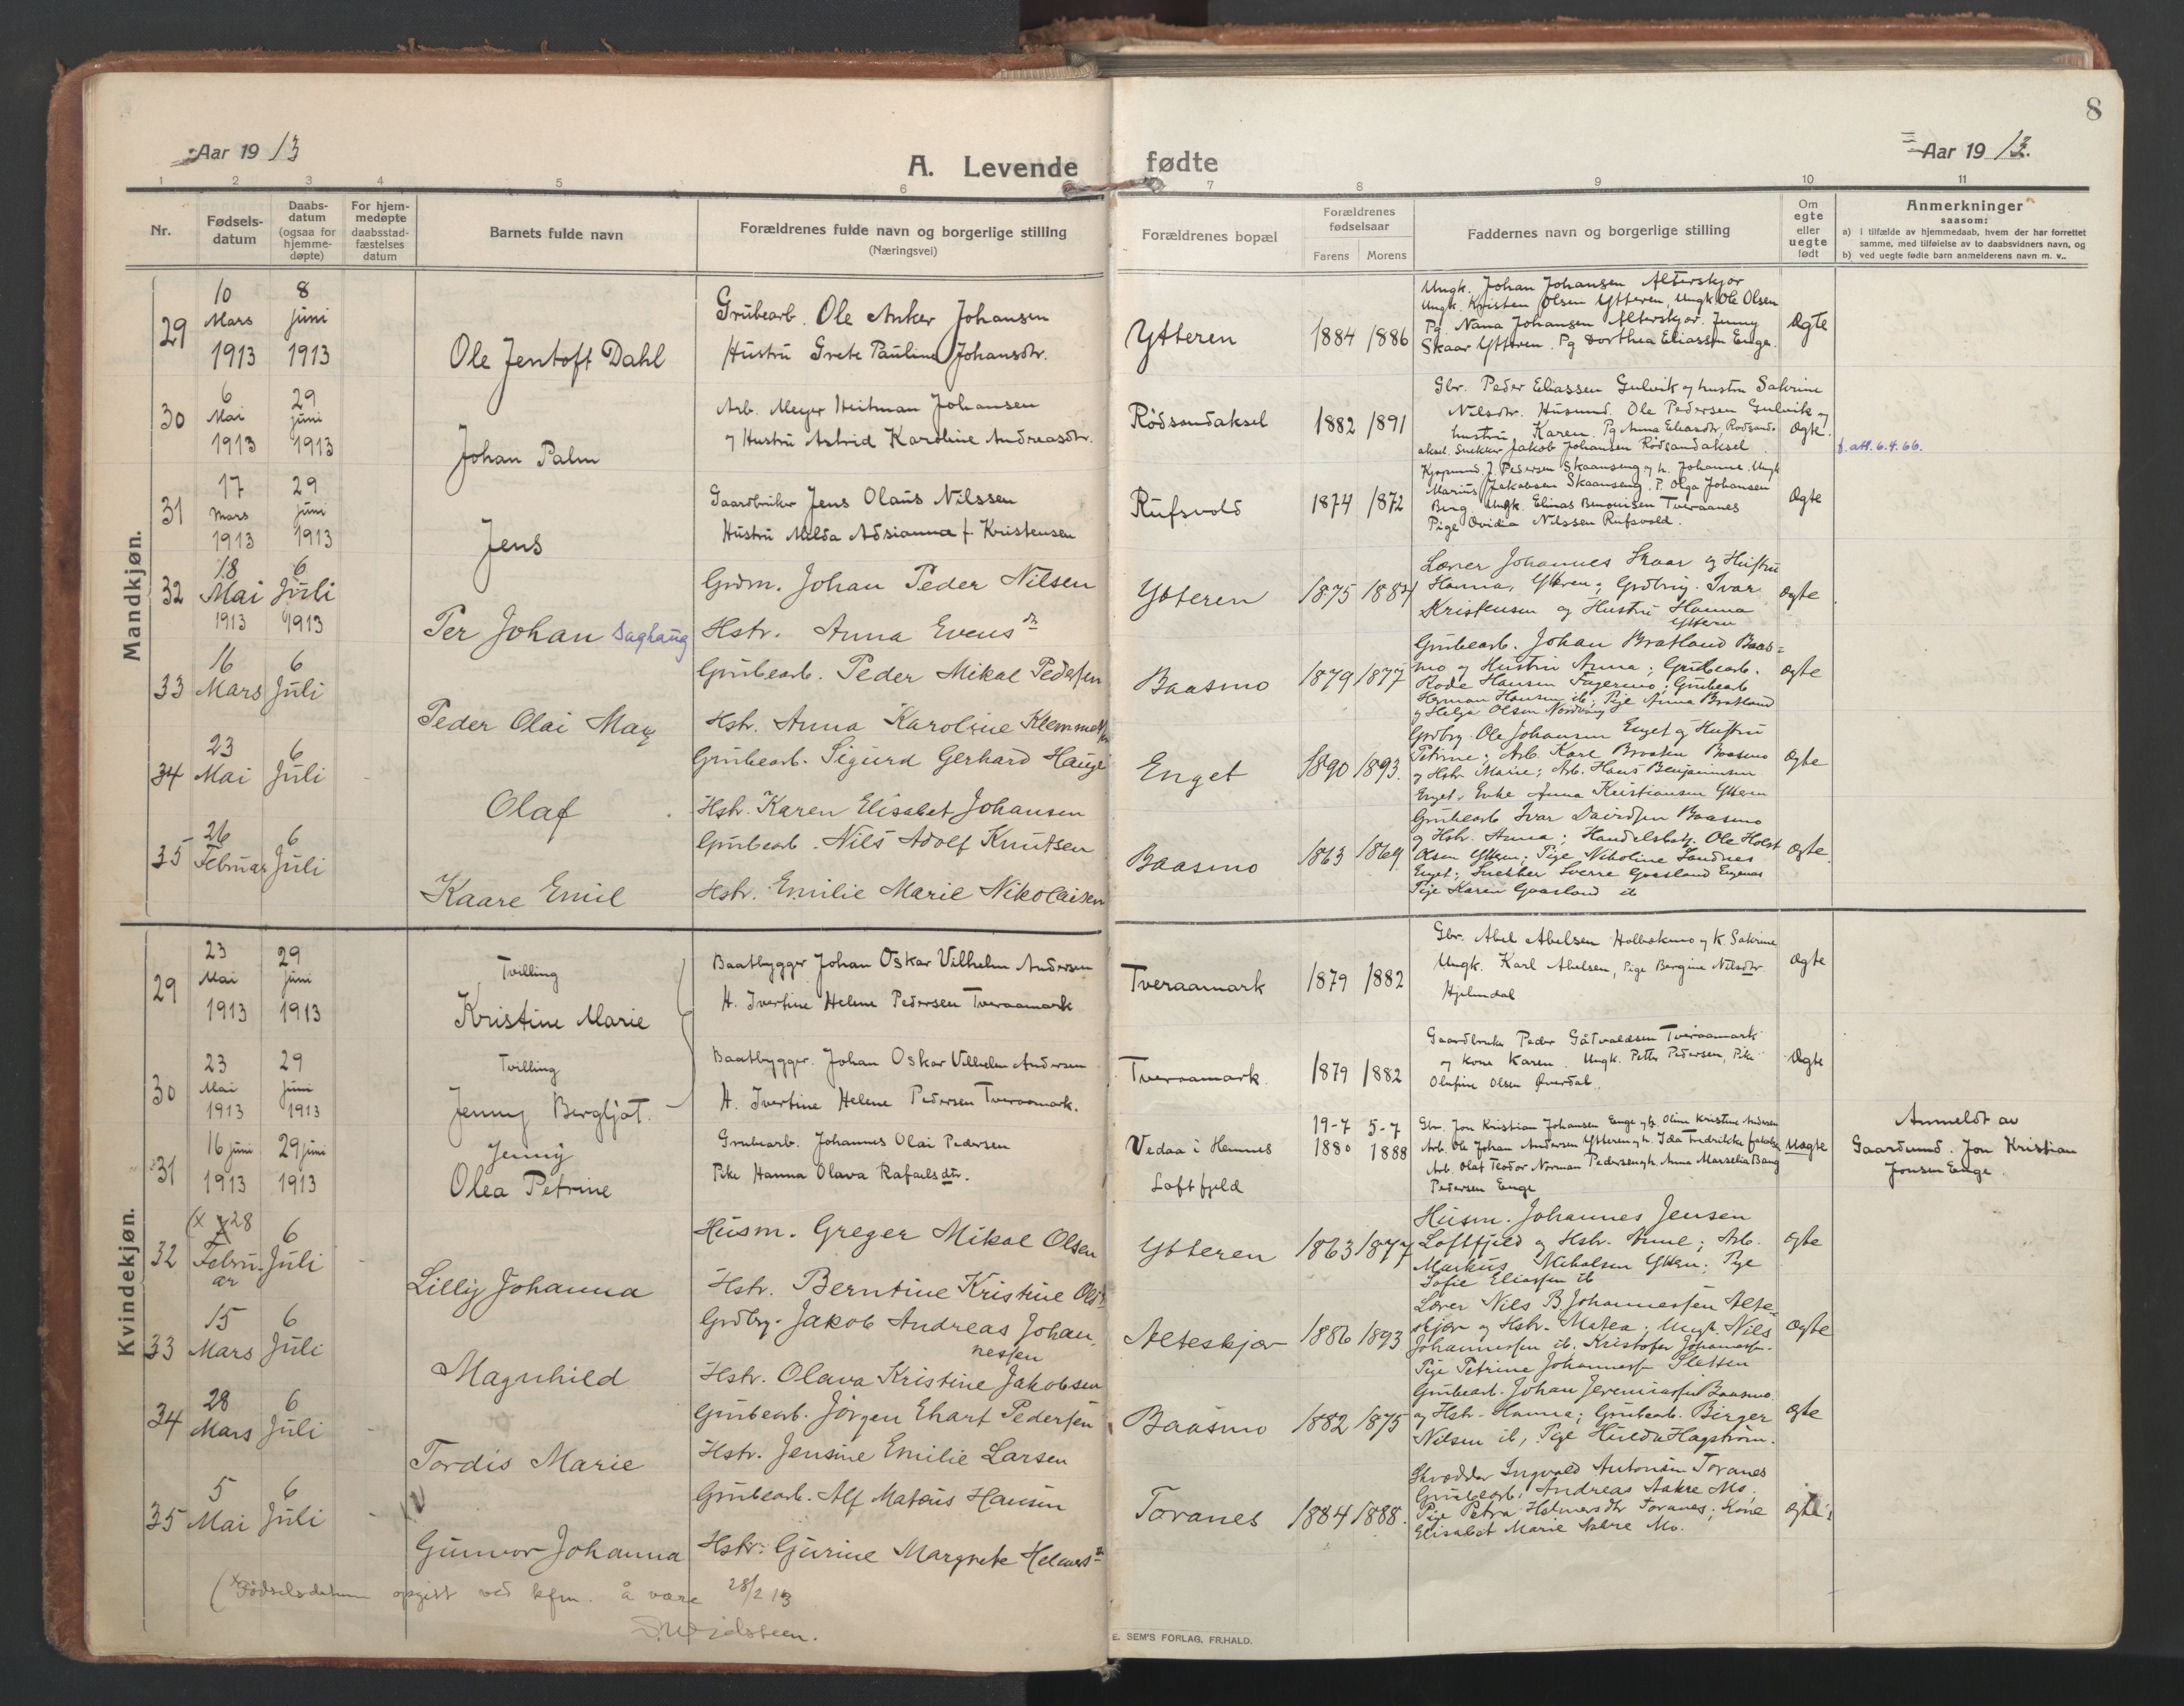 Aar 1913
A. Levende fødte
Aar 1913.
8
1 2 3 4 5 6 7 8 9 10 11
Nr.
Fødsels-
datum
Daabs-
datum
(ogsaa for
hjemme-
døpte)
For hjem-
medøpte
daabsstad-
fæstelses
datum
Barnets fulde navn
Forældrenes fulde navn og borgerlige stilling
(Næringsvei)
Forældrenes bopæl
Forældrenes
fødselsaar
Farens Morens
Faddernes navn og borgerlige stilling
Om
egte
eller
uegte
født
Anmerkninger
saasom:
a) i tilfælde av hjemmedaab, hvem der har forrettet
samme, med tilføielse av to daabsvidners navn, og
b) ved uegte fødte barn anmelderens navn m. v..
Mandkjøn.
29
10
Mars
1913
8
juni
1913
Ole Jentoft Dahl
Grubearb. Ole Anker Johansen
Hustru Grete Pauline Johansdtr.
Ytteren
1884 1886
Ungk. Johan Johansen Alterskjør
Ungk. Kristen Olsen Ytteren, Ungk Ole Olsen
Pg. Nana Johansen Alterskjør. Jenny
Skaar Ytteren. Pg Dorthea Eliassen Enge.
Ægte
30
6
Mai
1913
29
juni
1913
Johan Palm
Arb. Meyer Heitman Johansen
og Hustru Astrid Karoline Andreasdtr.
Rødsandaksel
1882 1891
Gbr. Peder Eliassen Gulvik og hustru Sakrine
Nilsdtr. Husmd. Ole Pedersen Gulvik og
hustru Karen. Pg Anna Eliasdtr, Rødsand-
aksel. Snekker Jakob Johansen Rødsandaksel
Ægte.
f. att. 6.4.66.
31
17
Mars
1913
29
juni
1913
Jens
Gaardbruker Jens Olaus Nilssen
Hustru Milda Adsianna f. Kristensen
Rufsvold
1874 1872
Kjøpmand. J. Pedersen Skaanseng og h. Johanne. Ungk
Marius Jakobsen Skaanseng. P. Olga Johansen
Berg. Ungk. Elinas Benonisen Tveraanes
Pige Ovidia Nilssen Rufsvold.
Ægte
32
18
Mai
1913
6
Juli
1913
Per Johan Saghaug
Grdm. Johan Peder Nilsen
Hstr. Anna Evensdtr
Ytteren
1875 1884
Lærer Johannes Skaar og Hustru
Hanna, Ytteren; Grdbrug. Ivar
Kristensen og Hustru Hanna
Ytteren
Ægte
33
16
Mars
6
Juli
Peder Olai Mag
Grubearb. Peder Mikal Pedersen
Hstr. Anna Karoline Klemmetsen
Baasmo
1879 1877
Grubearb. Johan Bratland Baas-
mo og Hustru Anna; Grubearb.
Rode Hansen Fagermo; Grubearb
Herman Hansen ib; Pige Anna Bratland
og Helga Olsen Nordvang
Ægte
34
23
Mai
6
Juli
Olaf
Grubearb. Sigurd Gerhard Hauge
Hstr. Karen Elisabet Johansen
Enget
1890 1893.
Grdbrg. Ole Johansen Enget og Hustru
Petrine; Arb. Karl Braaten Baasmo
og Hstr. Marie; Arb. Hans Benjaminsen
Enget, Enke Anna Kristiansen Ytteren
Ægte
35
26
Februar
6
Juli
Kaare Emil
Grubearb. Nils Adolf Knutsen
Hstr. Emilie Marie Nikolaisen
Baasmo
1863 1869
Grubearb Ivar Davidsen Baasmo
og Hstr. Anna; Handelsbetj. Ole Holst
Olsen Ytteren; Pige Nikoline Sandnes
Enget; Snekker Sverre Gaasland Engenes
Pige Karen Gaasland ib
Ægte.
Kvindekjøn.
29
23
Mai
1913
29
juni
1913
Tvilling
Kristine Marie
Baatbygger Johan Oskar Vilhelm Andersen
H. Ivertine Helene Pedersen Tveraamark
Tveraamark
1879 1882
Gbr. Abel Abelsen Holbekmo og K. Sakrine
Ungk. Karl Abelsen, Pige Bergine Nilsdtr.
Hjelmdal
Ægte
30
23
Mai
1913
29
Juni
1913
Tvilling
Jenny Bergljot.
Baatbygger. Johan Oskar Vilhelm Andersen
H. Ivertine Helene Pedersen Tveraamark.
Tveraamark
1879 1882
Gaardbruker Peder Gåtvaldsen Tveraamark
og kone Karen. Ungk. Petter Pedersen, Pike
Olufine Olsen Øverdal.
Ægte
31
16 juni
1913
29 juni
1913
Jenny
Olea Petrine
Grubearb. Johannes Olai Pedersen
Pike Hanna Olava Rafaelsdtr.
Vedaa i Hemnes
Loftfjeld
19-7 5-7
1880 1888
Gbr. Jon Kristian Johansen Enge og h. Oline Kristine Andersen
Arb. Ole Johan Andersen Ytteren og h. Ida Fredrikke Jakobsen
Arb. Olaf Teodor Norman Pedersen og h. Anna Marselia Bang
Pedersen Enge
Uægte
Anmeldt av
Gaardmd. Jon Kristian
Jonsen Enge.
32
(x 28
Febru-
ar
6
Juli
Lilly Johanna
Husm. Greger Mikal Olsen
Hstr. Berntine Kristine Olsdtr
Ytteren
1863 1877
Husm. Johannes Jensen
Loftfjeld og Hstr. Anne; Arb.
Markus Mikalsen Ytteren; Pige
Sofie Eliassen ib
Ægte
33
15
Mars
6
Juli
Magnhild
Grdbrg. Jakob Andreas Johan-
nessen
Hstr. Olava Kristine Jakobsen
Alteskjær
1886 1893
Lærer Nils B. Johannessen Alte-
skjær og Hstr. Matea; Ungk. Nils
Johannessen ib. Kristofer Johannessen.
Pige Petrine Johannessen Sletten
Ægte
34
28
Mars
6
Juli
Tordis Marie
Grubearb. Jørgen Ehart Pedersen
Hstr. Jensine Emilie Larsen
Baasmo
1882 1875
Grubearb. Johan Jeremiassen Baasmo
og Hstr. Hanna; Grubearb. Birger
Nilsen ib, Pige Hulda Hagstrøm.
Ægte
35
5
Mai
6
Juli
Gunvor Johanna
Grubearb. Alf Mateus Hansen
Hstr. Gurine Margrete Helmersdtr
Toranes
1884 1888.
Skrædder Ingvald Antonsen Toranes
Grubearb. Andreas Aakre Mo.
Pige Petra Helmersdtr Toranes; Kone
Elisabet Marie Aakre Mo.
Ægte
(x Fødselsdatum opgitt ved kfm. å være 28/2 13
E. SEM'S FORLAG, FR.HALD.